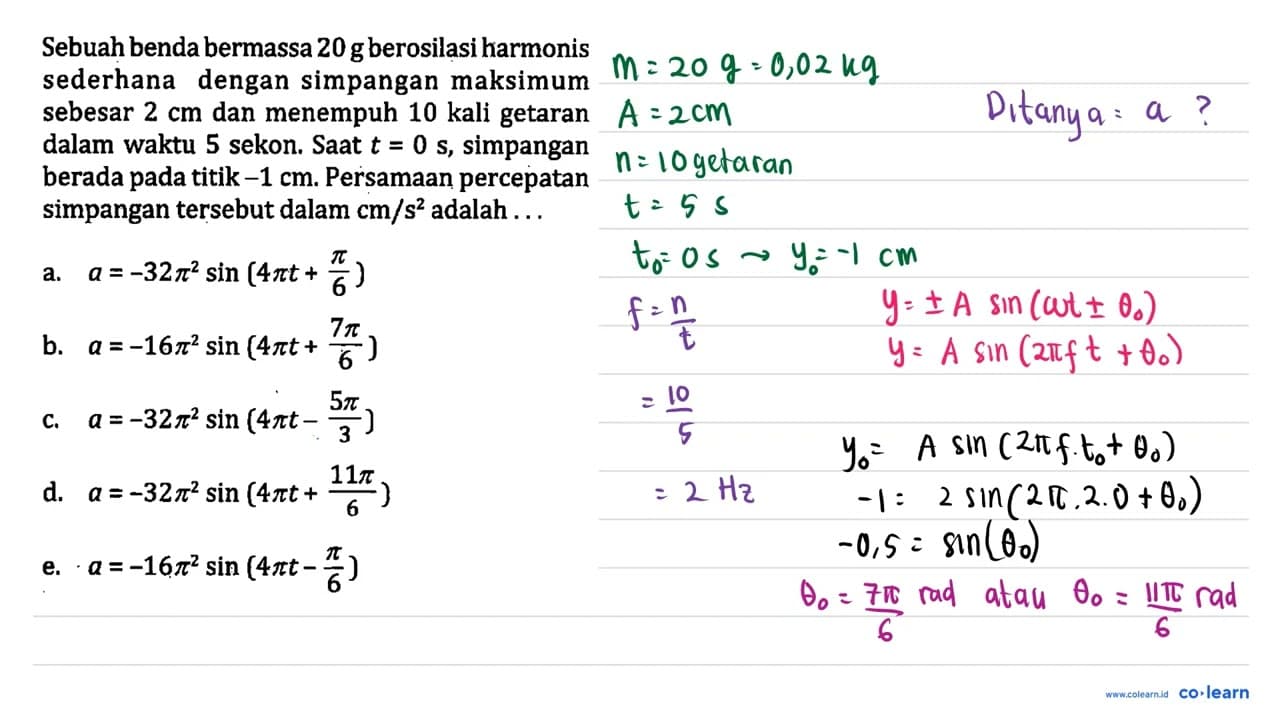 Sebuah benda bermassa 20 g berosilasi harmonis
sederhana dengan simpangan maksimum
sebesar 2 cm dan menempuh 10 kali getaran
dalam waktu 5 sekon. Saat t = 0 s, simpangan
berada pada titik –1 cm. Persamaan percepatan
simpangan tersebut dalam cm/s² adalah . . .
a. a = –32π² sin (4πt + π/6)
b. a = –16π² sin (4πt + 7π/6)
c. a = –32π² sin (4πt – 5π/3)
d. a = –32π² sin (4πt + 11π/6)
e. a = –16π² sin (4πt – π/6)
m = 20 g = 0,02 kg
A = 2 cm
n = 10 getaran
t = 5 s
t₀ = 0 s → y₀ = -1 cm
f = n/t
= 10/5
= 2 Hz
Ditanya = a ?
y = ± A sin (ωt ± θ₀)
y = A sin (2πf t + θ₀)
y₀ = A sin (2πf.t₀ + θ₀)
-1 = 2 sin (2π.2.0 + θ₀)
-0,5 = sin(θ₀)
θ₀ = 7π/6 rad atau θ₀ = 11π/6 rad
www.colearn.id co·learn